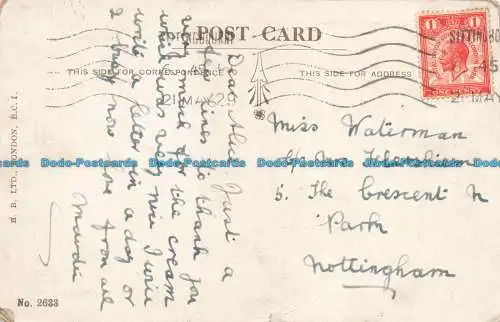 POST CARD
THIS SIDE FOR CORRESPONDENCE
THIS SIDE FOR ADDRESS
SITTINGBO
4 5
21 MA
1 1
ONE PENNY
Dear Just a
few lines to thank you
very much for the cream
which was very nice I will
write a letter in a day or
2 busy now love from all
Miss Waterman
c/o Mrs
5, The Crescent N
Park
Nottingham
H. B. LTD., LONDON, E.C.1.
No. 2633
Dodo-Postcards Dodo-Postcards Dodo-Postcards Dodo-Postcards Dodo-Postcards